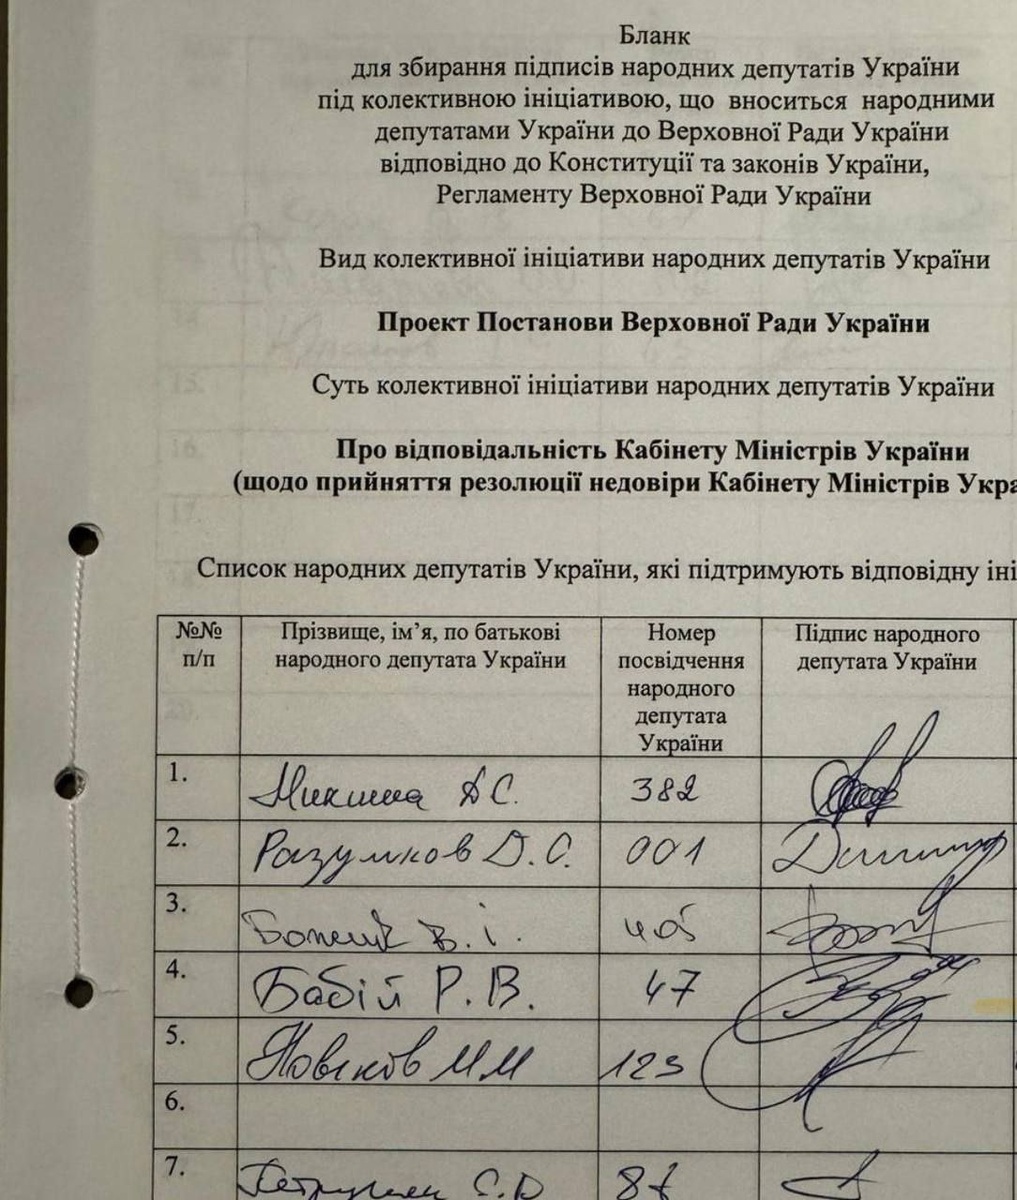 Бланк
для збирання підписів народних депутатів України
під колективною ініціативою, що вноситься народними
депутатами України до Верховної Ради України
відповідно до Конституції та законів України,
Регламенту Верховної Ради України
Вид колективної ініціативи народних депутатів України
Проект Постанови Верховної Ради України
Суть колективної ініціативи народних депутатів України
Про відповідальність Кабінету Міністрів України
(щодо прийняття резолюції недовіри Кабінету Міністрів Укра
Список народних депутатів України, які підтримують відповідну іні
№№ п/п
Прізвище, ім’я, по батькові народного депутата України
Номер посвідчення народного депутата України
Підпис народного депутата України
1. Микиша Д С. 382
2. Разумков Д. О. 001
3. В. І. 405
4. Бабій Р. В. 47
5. Новіков М М 123
6.
7. 87